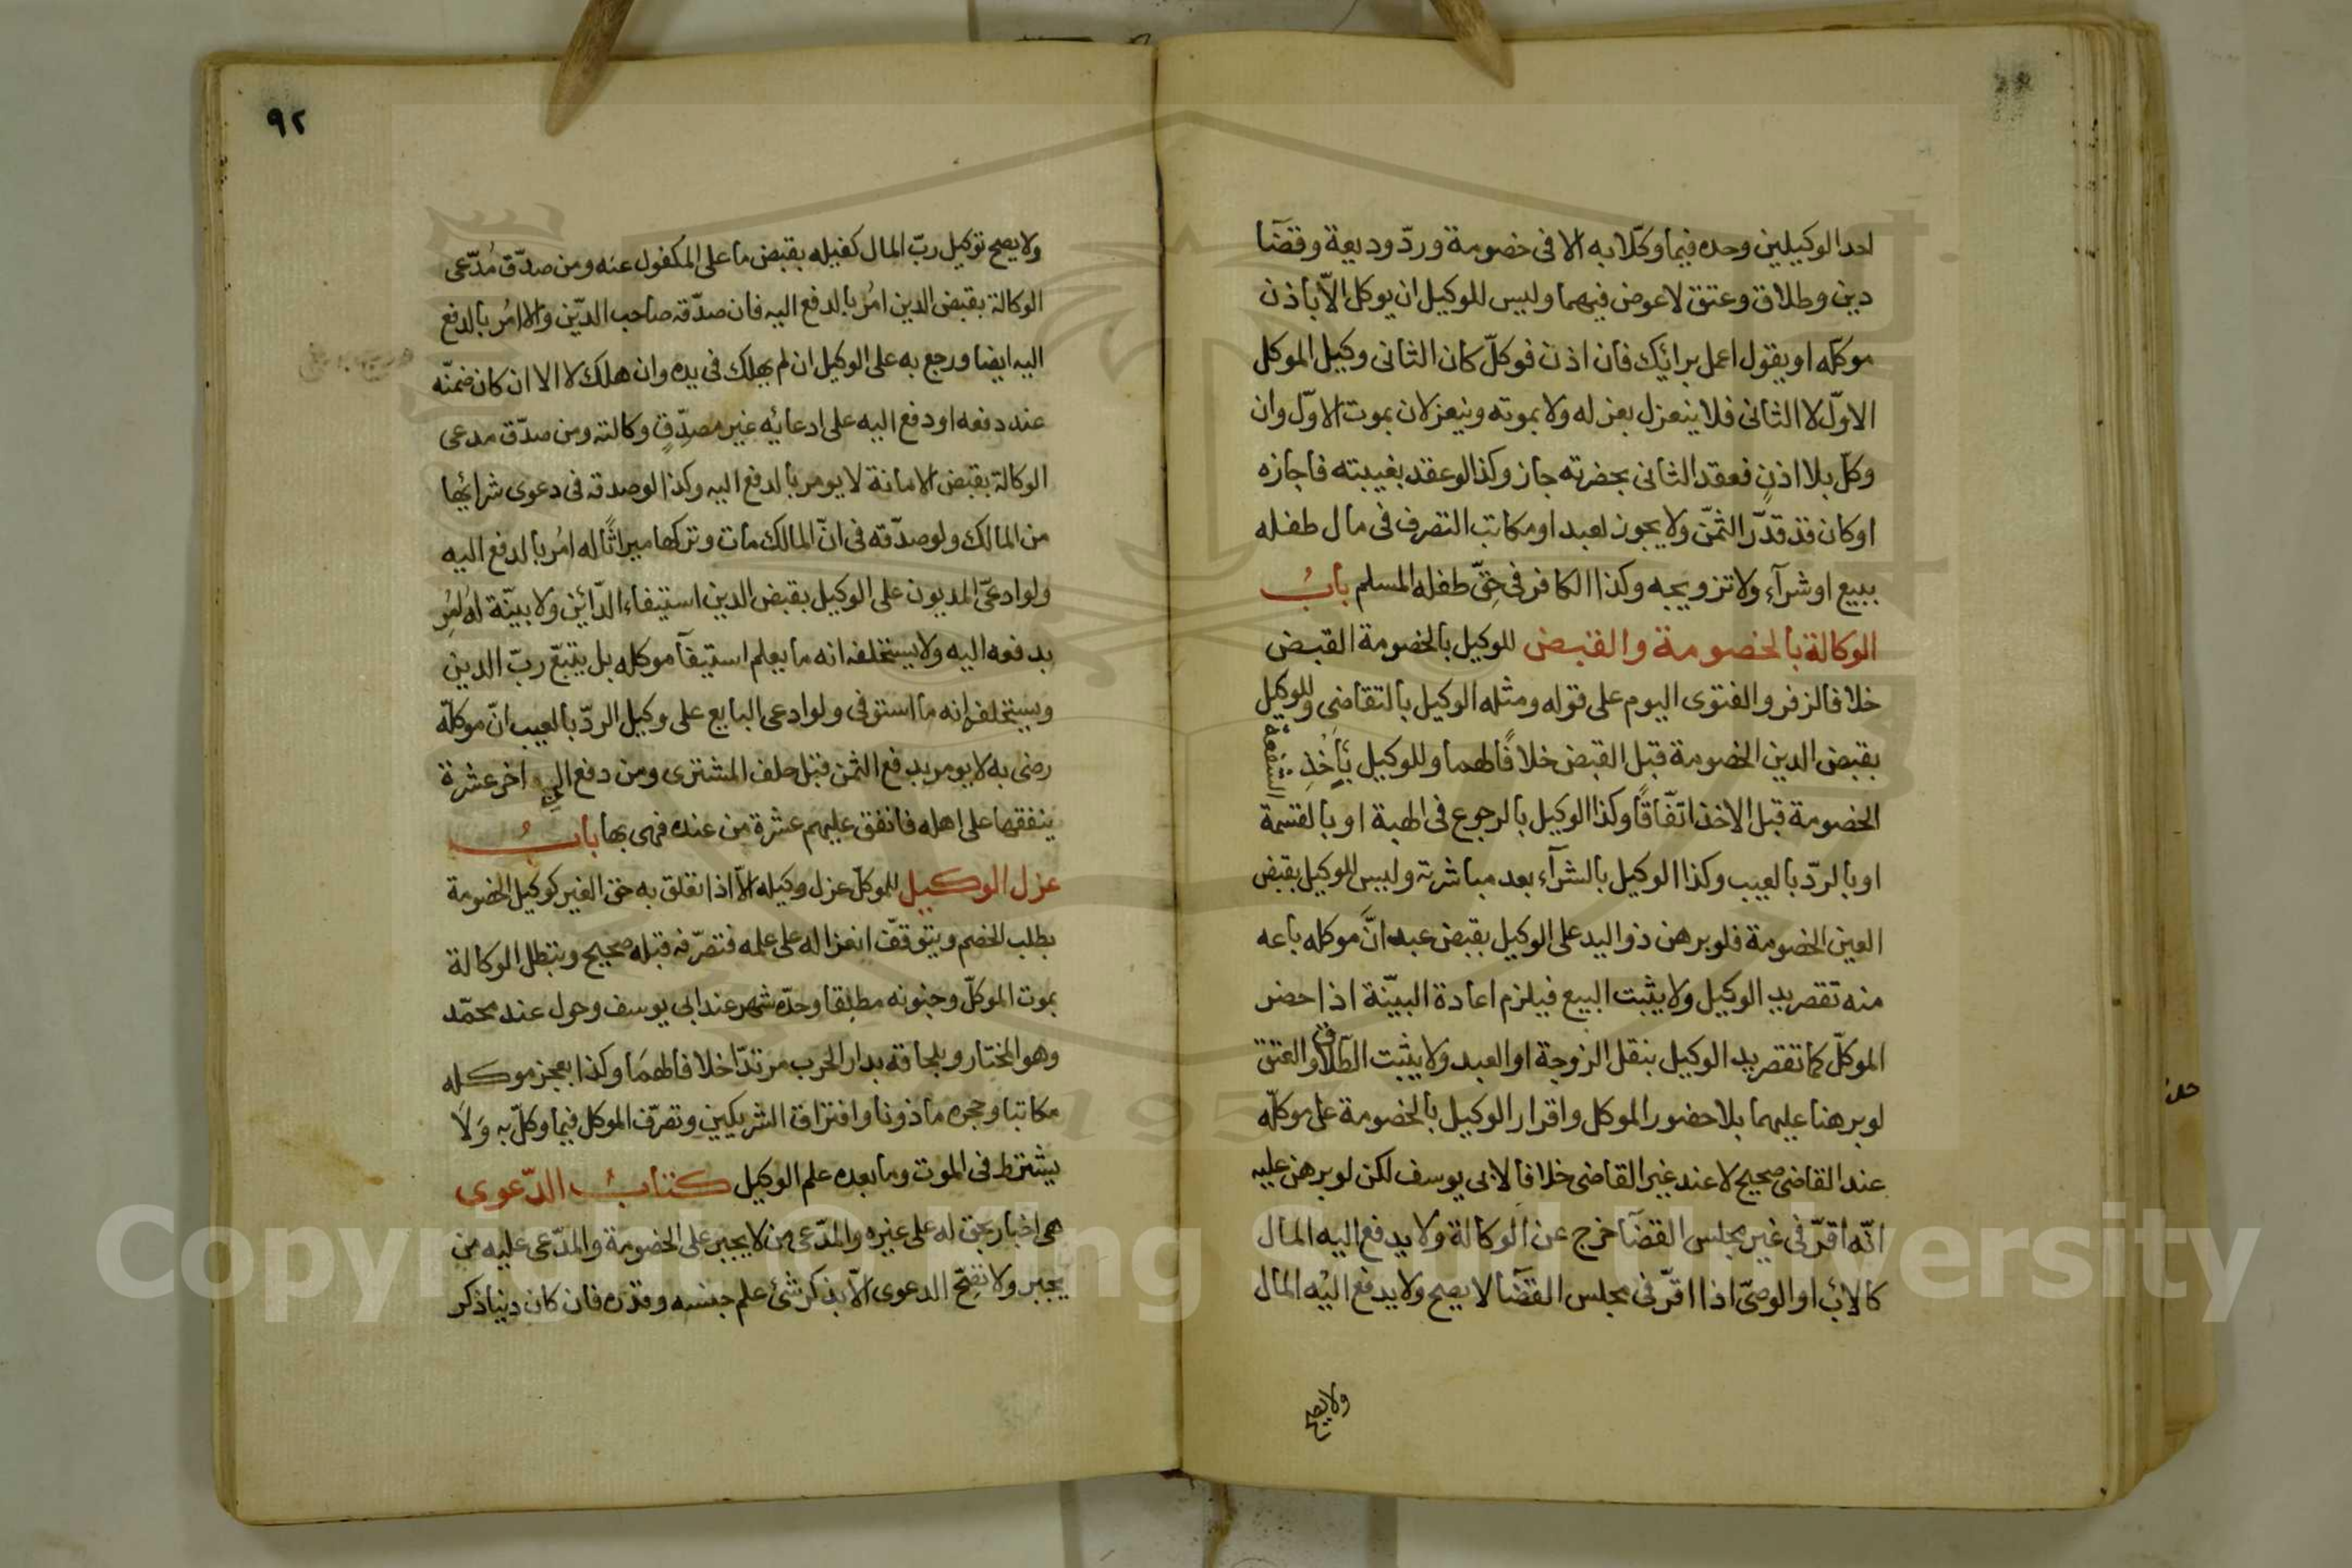 احد الوكيلين وحده فيما وكلا به الا فى خصومة وردّ وديعة وقضآ
دين وطلاق وعتق لا عوض فيهما وليس للوكيل ان يوكل الّا باذن
موكله او يقول اعمل برائك فان اذن فوكلّ كان الثانى وكيل الموكل
الاوّل لا الثانى فلا ينعزل بعزله ولا بموته وينعزلان بموت الاوّل وان
وكلّ بلا اذنٍ فعقد الثانى بحضرته جاز وكذا لو عقد بغيبته فاجازه
او كان قد قدّر الثمّن ولا يجوز لعبد او مكاتب التصرف فى مال طفله
ببيع او شرآء ولا تزويجه وكذا الكافر فى حقّ طفله المسلم بابُ
الوكالة بالخصومة والقبض للوكيل بالخصومة القبض
خلافا لزفر والفتوى اليوم على قوله ومثله الوكيل بالتقاضى وللوكيل
بقبض الدين الخصومة قبل القبض خلافًا لهما وللوكيل بأخذِ الشفعة
الخصومة قبل الاخذ اتّفاقًا وكذا الوكيل بالرجوع فى الهبة او بالقسمة
او بالردّ بالعيب وكذا الوكيل بالشرآء بعد مباشرته وليس للوكيل بقبض
العين الخصومة فلو برهن ذو اليد على الوكيل بقبض عبد انَّ موكله باعه
منه تقصر يد الوكيل ولا يثبت البيع فيلزم اعادة البيّنة اذا حضر
الموكلّ كما تقصر يد الوكيل بنقل الزوجة او العبد ولا يثبت الطّلاق والعتق
لو برهنا عليهما بلا حضور الموكل واقرار الوكيل بالخصومة على موكلّه
عند القاضى صحيح لا عند غير القاضى خلافا لابى يوسف لكن لو برهن عليه
انّه اقرّ فى غير مجلس القضآ خرج عن الوكالة ولا يدفع اليه المال
كالاب او الوصىّ اذا اقرّ فى مجلس القضآ لا يصح ولا يدفع اليه المال
ولا يصح
٩٢
ولا يصح توكيل ربّ المال كفيله بقبض ما على المكفول عنه ومن صدّق مُدّعى
الوكالة بقبض الدين امُر بالدفع اليه فان صدّقه صاحب الدّين والا امُر بالدفع
اليه ايضا ورجع به على الوكيل ان لم يهلك فى يده وان هلك لا الا ان كان ضمنّه
عند دفعه او دفع اليه على ادعائه غير مصدِّقٍ وكالته ومن صدّق مدعى
الوكالة بقبض الامانة لا يومر بالدفع اليه وكذا لو صدقه فى دعوى شرائها
من المالك ولو صدّقه فى انّ المالك مات وتركها ميراثًا له امُر بالدفع اليه
ولو ادعىّ المديون على الوكيل بقبض الدين استيفاء الدّائن ولا بيّنة له امُرِ
بدفعه اليه ولا يستحلف انه ما يعلم استيفآ موكله بل يتبعّ ربّ الدين
ويستحلفه انه ما استوفى ولو ادعى البايع على وكيل الردّ بالعيب انّ موكلّه
رضى به لا يومر بدفع الثمن قبل حلف المشترى ومن دفع الى اخر عشرة
ينفقها على اهله فانفق عليهم عشرة من عنده فهى بها بابُ
عزل الوكيل للموكلّ عزل وكيله الّا اذا تعلق به حق الغير كوكيل الخصومة
بطلب الخصم ويتوقفّ انعزاله على علمه فتصرّفه قبله صحيح وتبطل الوكالة
بموت الموكلّ وجنونه مطبقا وحدّه شهر عند ابى يوسف وحول عند محمّد
وهو المختار وبلحاقه بدار الحرب مرتدّا خلافا لهمَا وكذا بعجز موكله
مكاتبا وحجره ماذونا وافتراق الشريكين وتصرّف الموكل فيما وكلّ به وَلَا
يشترط فى الموت وما بعده علم الوكيل كتابُ الدّعوى
هى اخبار بحق له على غيره والمدّعى من لا يجبر على الخصومة والمدّعى عليه من
يجبر ولا تصِحّ الدعوى الّا بذكر شئ علم جنسه وقدره فان كان دينا ذكر
Copyright © King Saud University